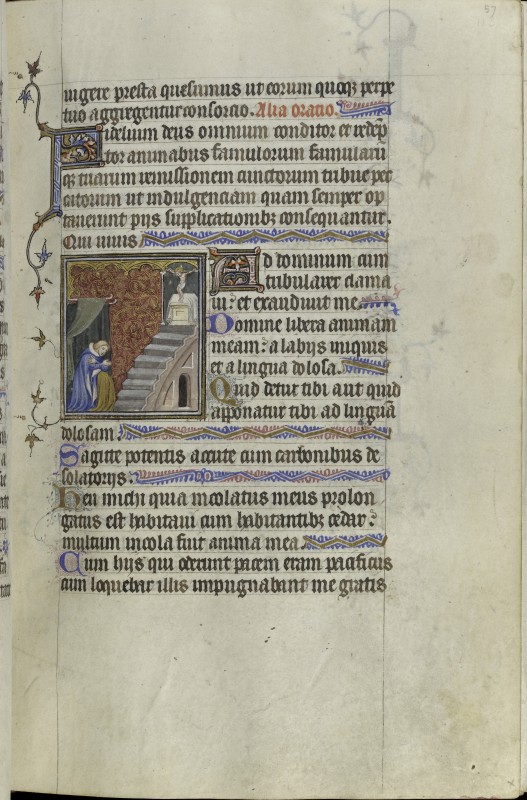 57
iugere presta quesumus ut eorum quoq; perpe
tuo aggregentur consorcio. Alia oratio.
Fidelium deus omnium conditor et redẽp
tor animabus famulorum famularũ
q; tuarum remissionem cunctorum tribue pec
catorum ut indulgenciam quam semper op
tauerunt pijs supplicationibz consequantur.
Qui uiuis
Ad dominum cum
tribularer clama
ui: et exaudiuit me
Domine libera animam
meam: a labijs iniquis
et a lingua dolosa.
Quid detur tibi aut quid
apponatur tibi ad linguã
dolosam:
Sagitte potentis accute cum carbonibus de
solatorijs.
Heu michi quia incolatus meus prolon
gatus est habitaui cum habitantibz cedar:
multum incola fuit anima mea.
Cum hijs qui oderunt pacem eram pacificus
cum loquebar illis impugnabant me gratis